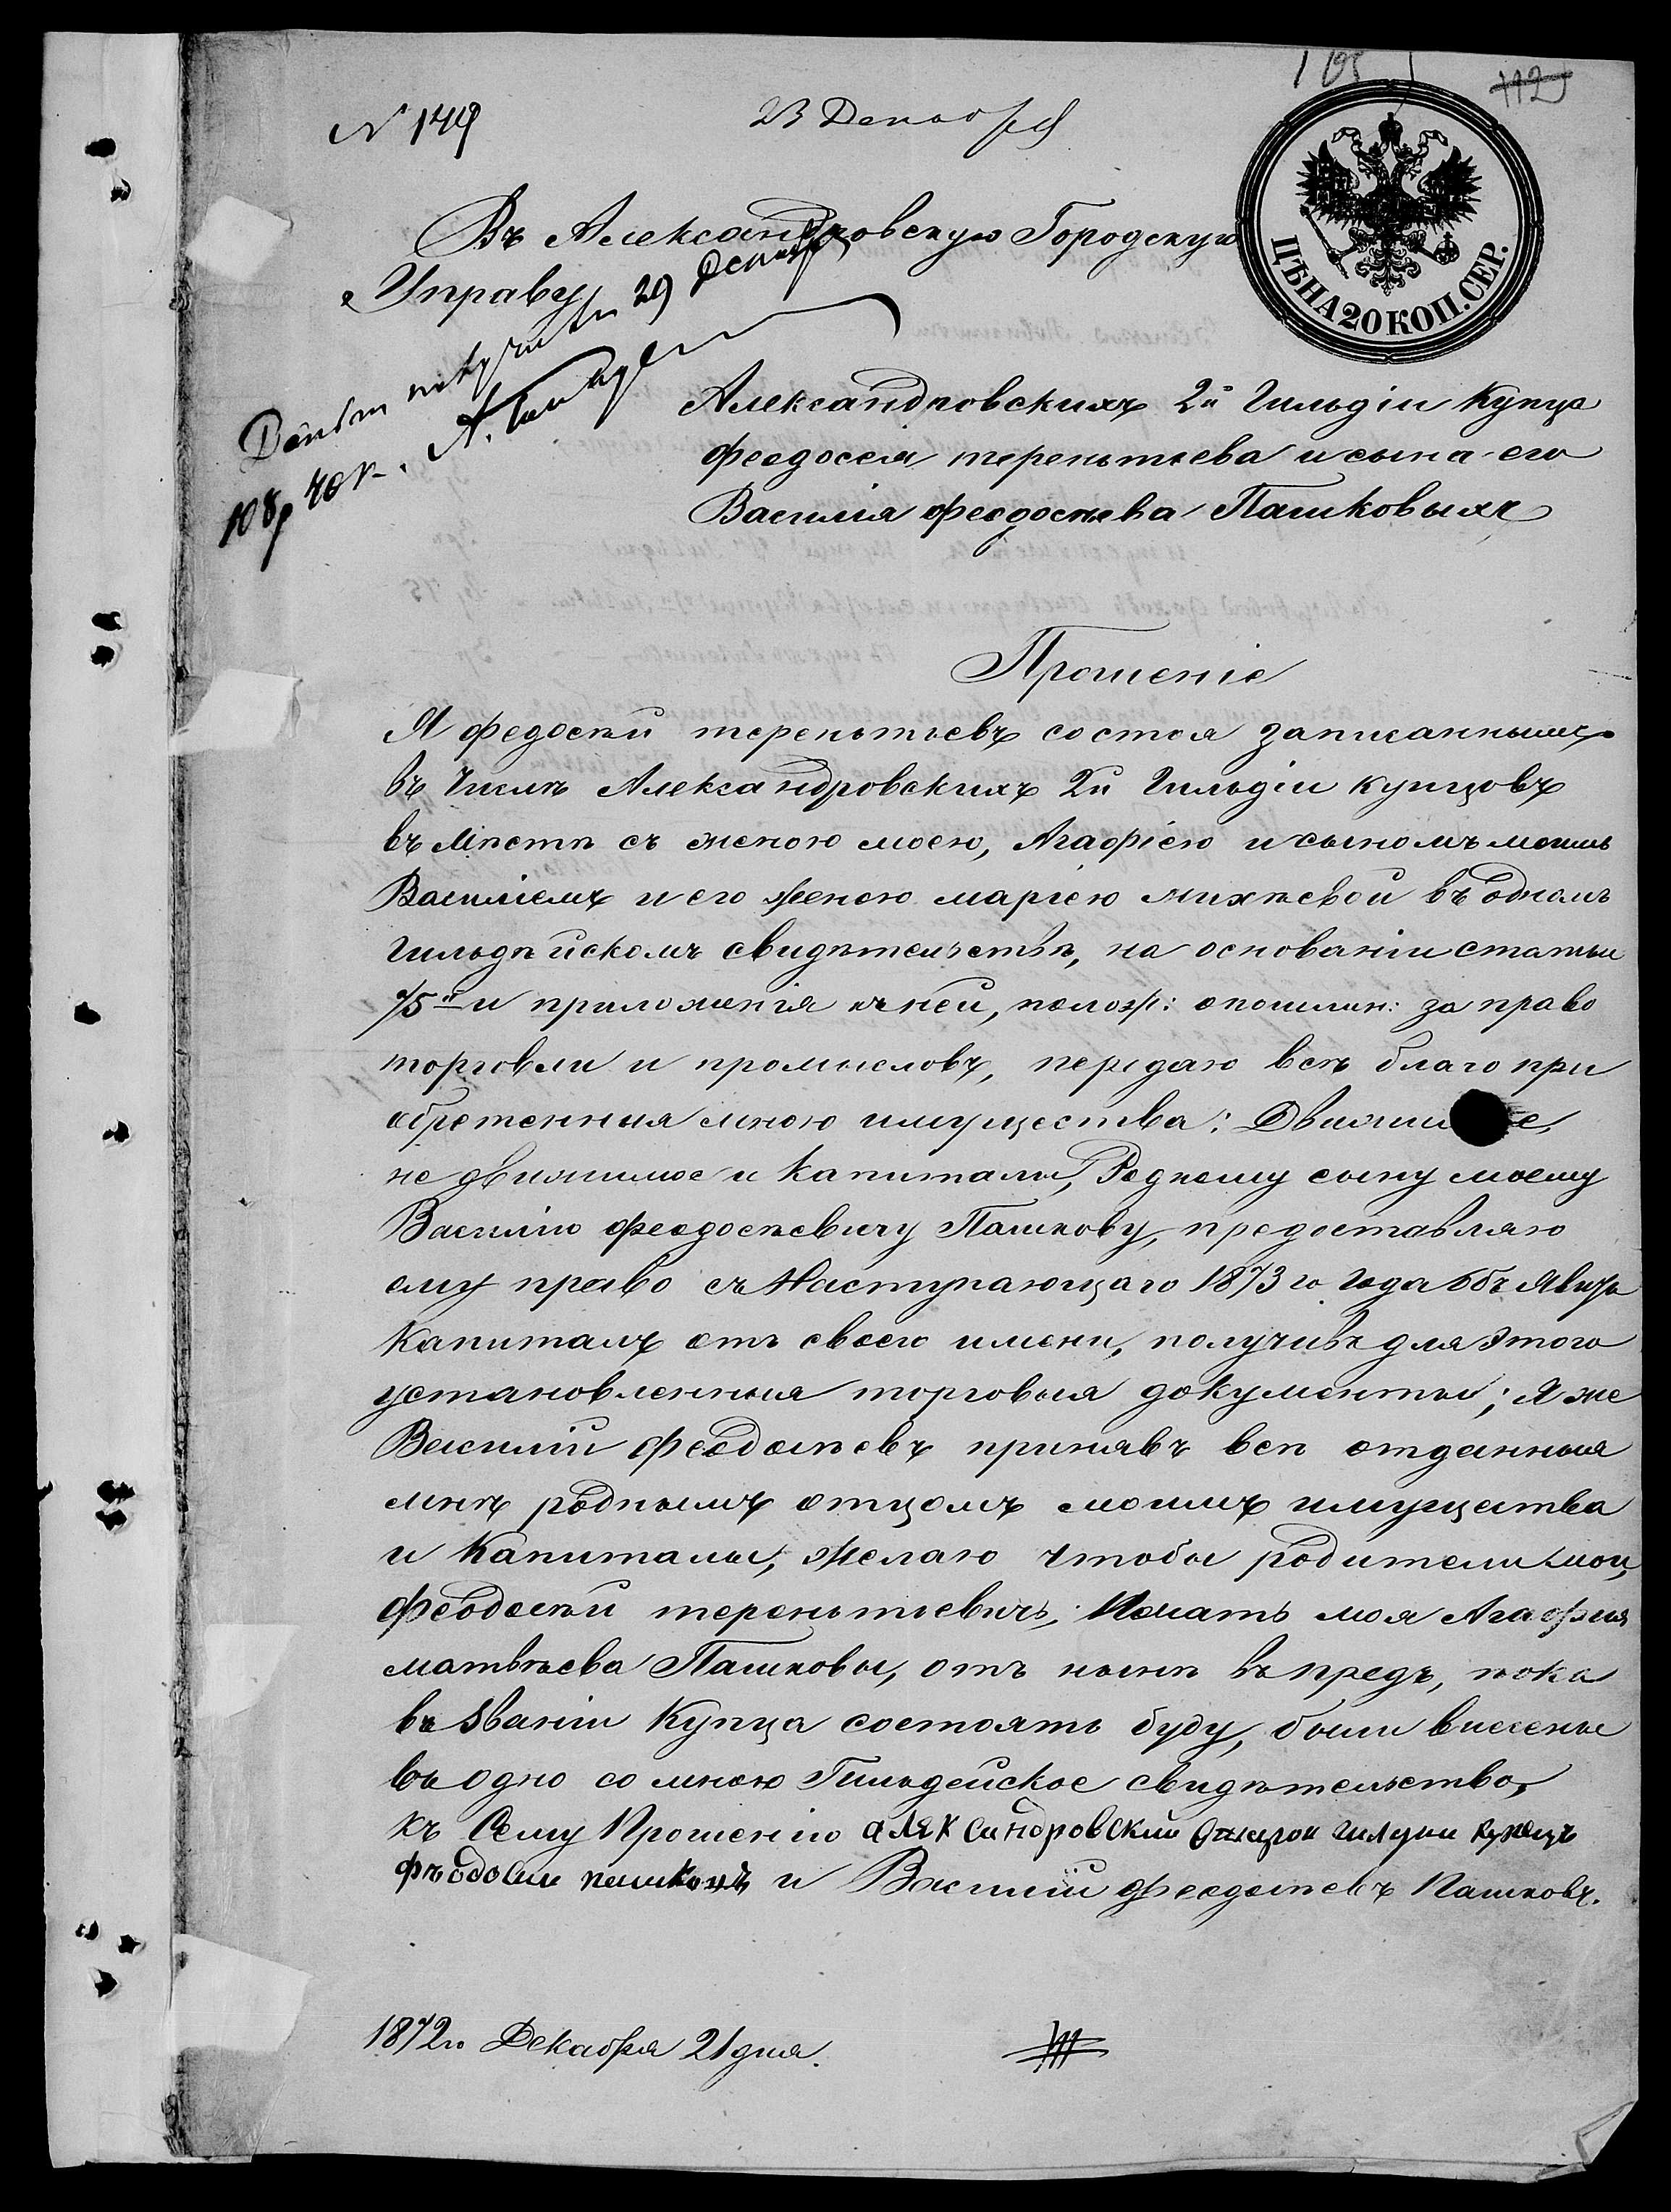 112
N 149
23 Декабря
ЦѢНА 20 КОП. СЕР.
Въ Александровскую Городскую
Управу
29 Декабря
Деньги получилъ
108р 40к.
Александровскихъ 2й Гильдіи Купца
Феодосея терентьева и сына его
Василія Феодосѣева Пашковыхъ
Прошеніе
Я федосѣй терентьевъ состоя записаннымъ
въ Числѣ Александровскихъ 2й Гильдіи купцовъ
въ Мѣстѣ съ женою моею, Агафіею и сыномъ моимъ
Василіемъ и его женою маріею михѣевой въ одномъ
Гильдѣйскомъ свидѣтельствѣ, на основаніи статьи
75й и приложенія къ ней, полож: о пошлин: за право
торговли и промысловъ, передаю всѣ благо прі
обретенныя мною имущества: Движимое,
не движимое и Капиталы, Родному сыну моему
Василію Феодосѣевичу Пашкову, предоставляю
ему право съ Наступающаго 1873го Года объ Явить
Капиталъ отъ своего имени, получивъ для этого
установленныя торговыя документы; Я же
Василій Феодосѣевъ принявъ всѣ отданныя
мнѣ роднымъ отцомъ моимъ имущества
и Капиталы, Желаю чтобы родители мои,
Феодосѣй терентьевичъ, И мать моя Агафия
матвѣева Пашковы, отъ нынѣ въ предъ, пока
въ Званіи Купца состоять буду, были внесены
въ одно со мною Гильдейское свидѣтельство,
къ Сему Прошенію алек сандровский гилдии купецъ
фъодосии пашковъ и Василій Феодосѣевъ Пашковъ.
1872го Декабря 21 дня.